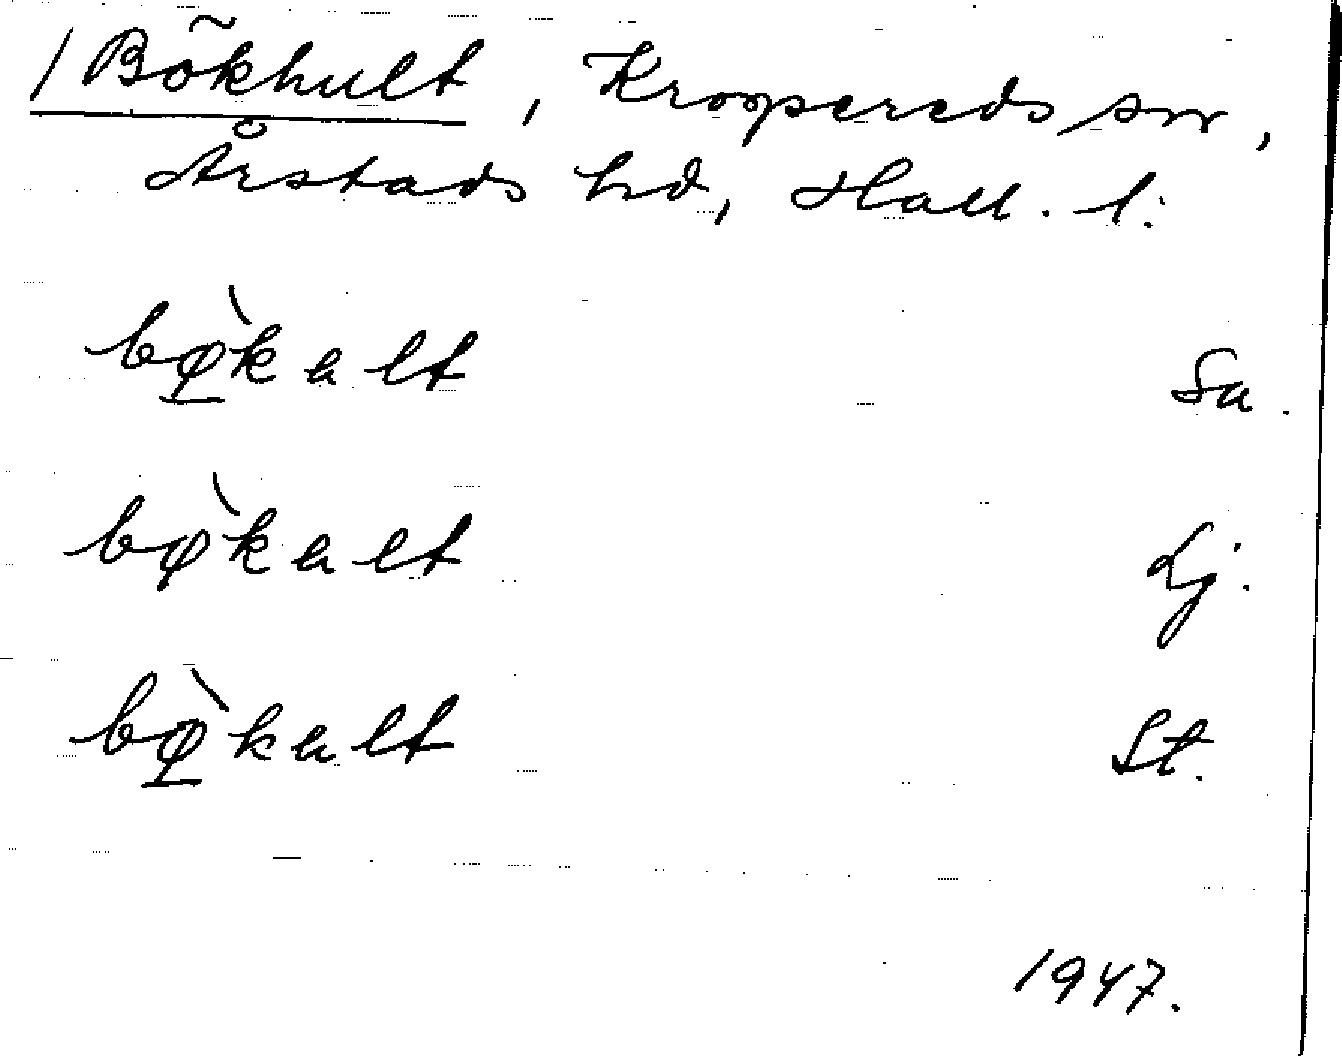 / Bökhult, Kroppereds sn,
Årstads hd, Hall. l:
bø̱̀kalt Sa.
bø̀kalt Lj.
bø̱̀kalt St.
1947.